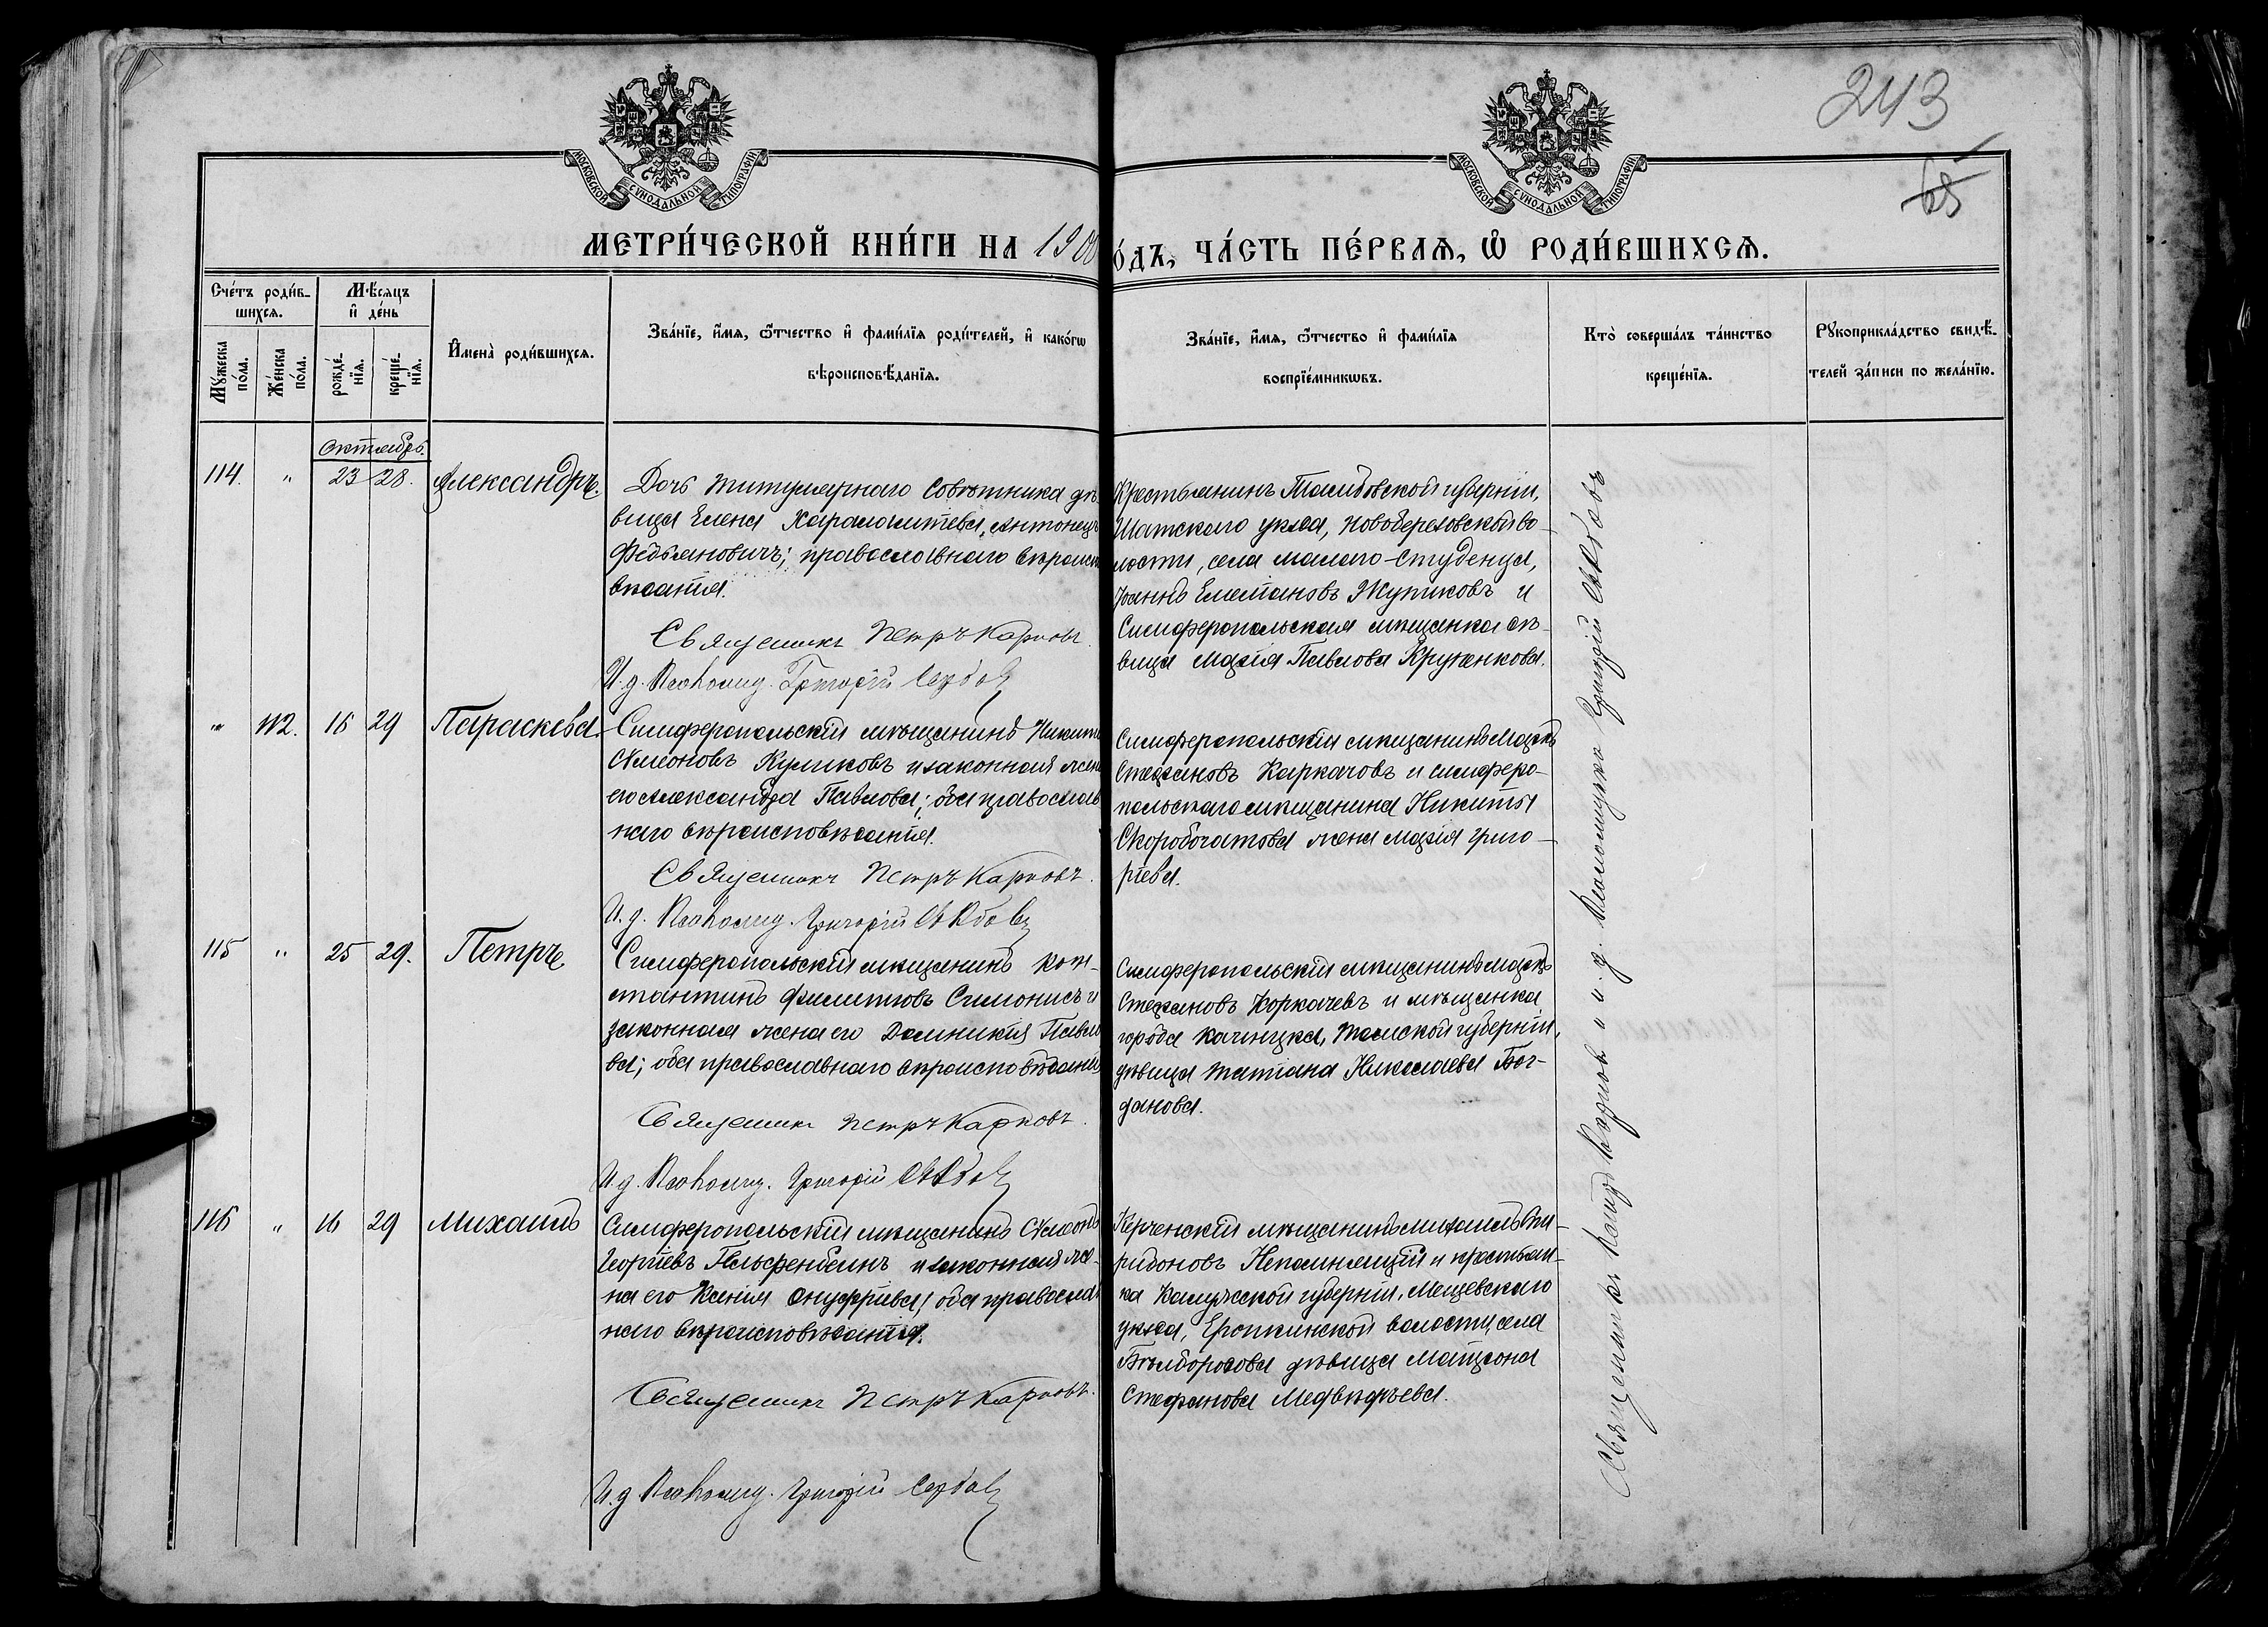 243
65
МОСКОВСКОЙ СѴНОДАЛЬНОЙ ТИПОГРАФІИ
МОСКОВСКОЙ СѴНОДАЛЬНОЙ ТИПОГРАФІИ
МЕТРИ́ЧЕСКОЙ КНИ́ГИ НА 1900 о́дъ, ЧА́СТЬ ПЕ́РВАЯ, Ѿ РОДИ́ВШИХСЯ.
Сче́тъ роди́в-
шихся.
Мѣ́сяцъ
и де́нь
Мꙋ́жеска
по́ла.
Же́нска
по́ла.
рожде́-
нія.
креще́-
нія.
Имена̀ роди́вшихся.
Зва́ніе, и́мя, ѻ҆́тчество и фами́лія роди́телей, и како́гѡ
вѣроисповѣ́данія.
Зва́ніе, и́мя, ѻ҆́тчество и фами́лія
воспріе́мникѡвъ.
Кто̀ соверша́лъ та́инство
креще́нія.
Рꙋкоприкла́дство свидѣ́-
телей за́писи по жела́нію.
Октябрь.
114. " 23 28. Александръ.
Дочь титулярнаго совѣтника дѣ-
вица Елена Харалампіева Антонецъ
Федьяновичъ; православнаго вѣроиспо
вѣданія.
Священникъ Петръ Карповъ.
И. д. Псаломщ. Григорій
Крестьянинъ Тамбовской губерніи,
Шатскаго уѣзда, Новоберезовской во-
лости, села Малаго-Студенца,
Іоаннъ Емеліановъ Жупиковъ и
Симферопольская мѣщанка дѣ-
вица Марія Павлова Круженкова.
" 112. 16 29 Параскева.
Симферопольскій мѣщанинъ Никита
Сѵмеоновъ Куликовъ и законная жена
его Александра Павлова; оба православ
наго вѣроисповѣданія.
Священникъ Петръ Карповъ.
И. д. Псаломщ. Григорій
Симферопольскій мѣщанинъ Маркъ
Стефановъ Каркачовъ и симферо-
польскаго мѣщанина Никиты
Скоробогатова жена Марія Григо-
ріева.
115 " 25 29. Петръ
Симферопольскій мѣщанинъ Кон-
стантинъ Филипповъ Симонисъ и
законная жена его Домникія Павло
ва; оба православнаго вѣроисповѣданія
Священникъ Петръ Карповъ.
И. д. Псаломщ. Григорій
Симферопольскій мѣщанинъ Маркъ
Стефановъ Коркачевъ и мѣщанка
города Каинска, Томской губерніи,
дѣвица Татіана Николаева Бог-
данова.
116 " 16 29 Михаилъ
Симферопольскій мѣщанинъ Сѵмеонъ
Георгіевъ Гельфенбеинъ и законная же-
на его Ксенія Онуфріева; оба православ
наго вѣроисповѣданія.
Священникъ Петръ Карповъ.
И. д. Псаломщ. Григорій
Керченскій мѣщанинъ Михаилъ Спи-
ридоновъ Непомнящій и крестьян-
ка Калужской губерніи, Мещевскаго
уѣзда, Еропкинской волости, села
дѣвица Матрона
Стефанова Медвѣдьева.
Священникъ Петръ Карповъ и и. д. Псаломщика Григорій